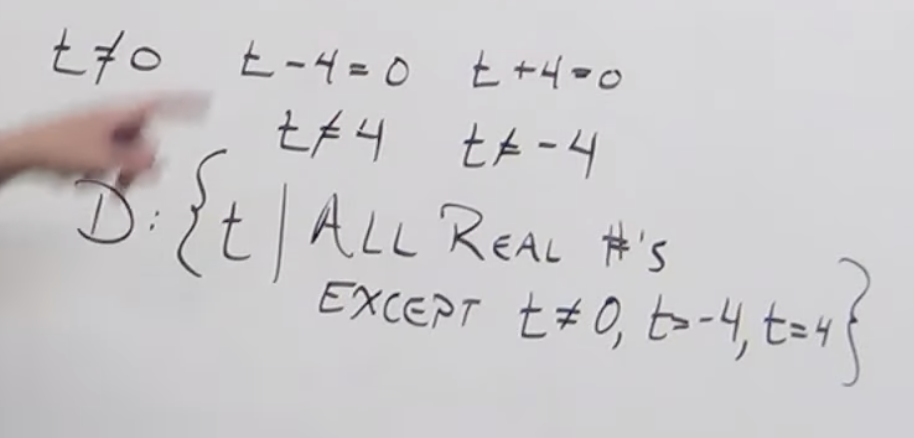 t≠0 t-4=0 t+4=0
t≠4 t≠-4
D:{t| ALL REAL #'s
EXCEPT t≠0, t=-4, t=4}